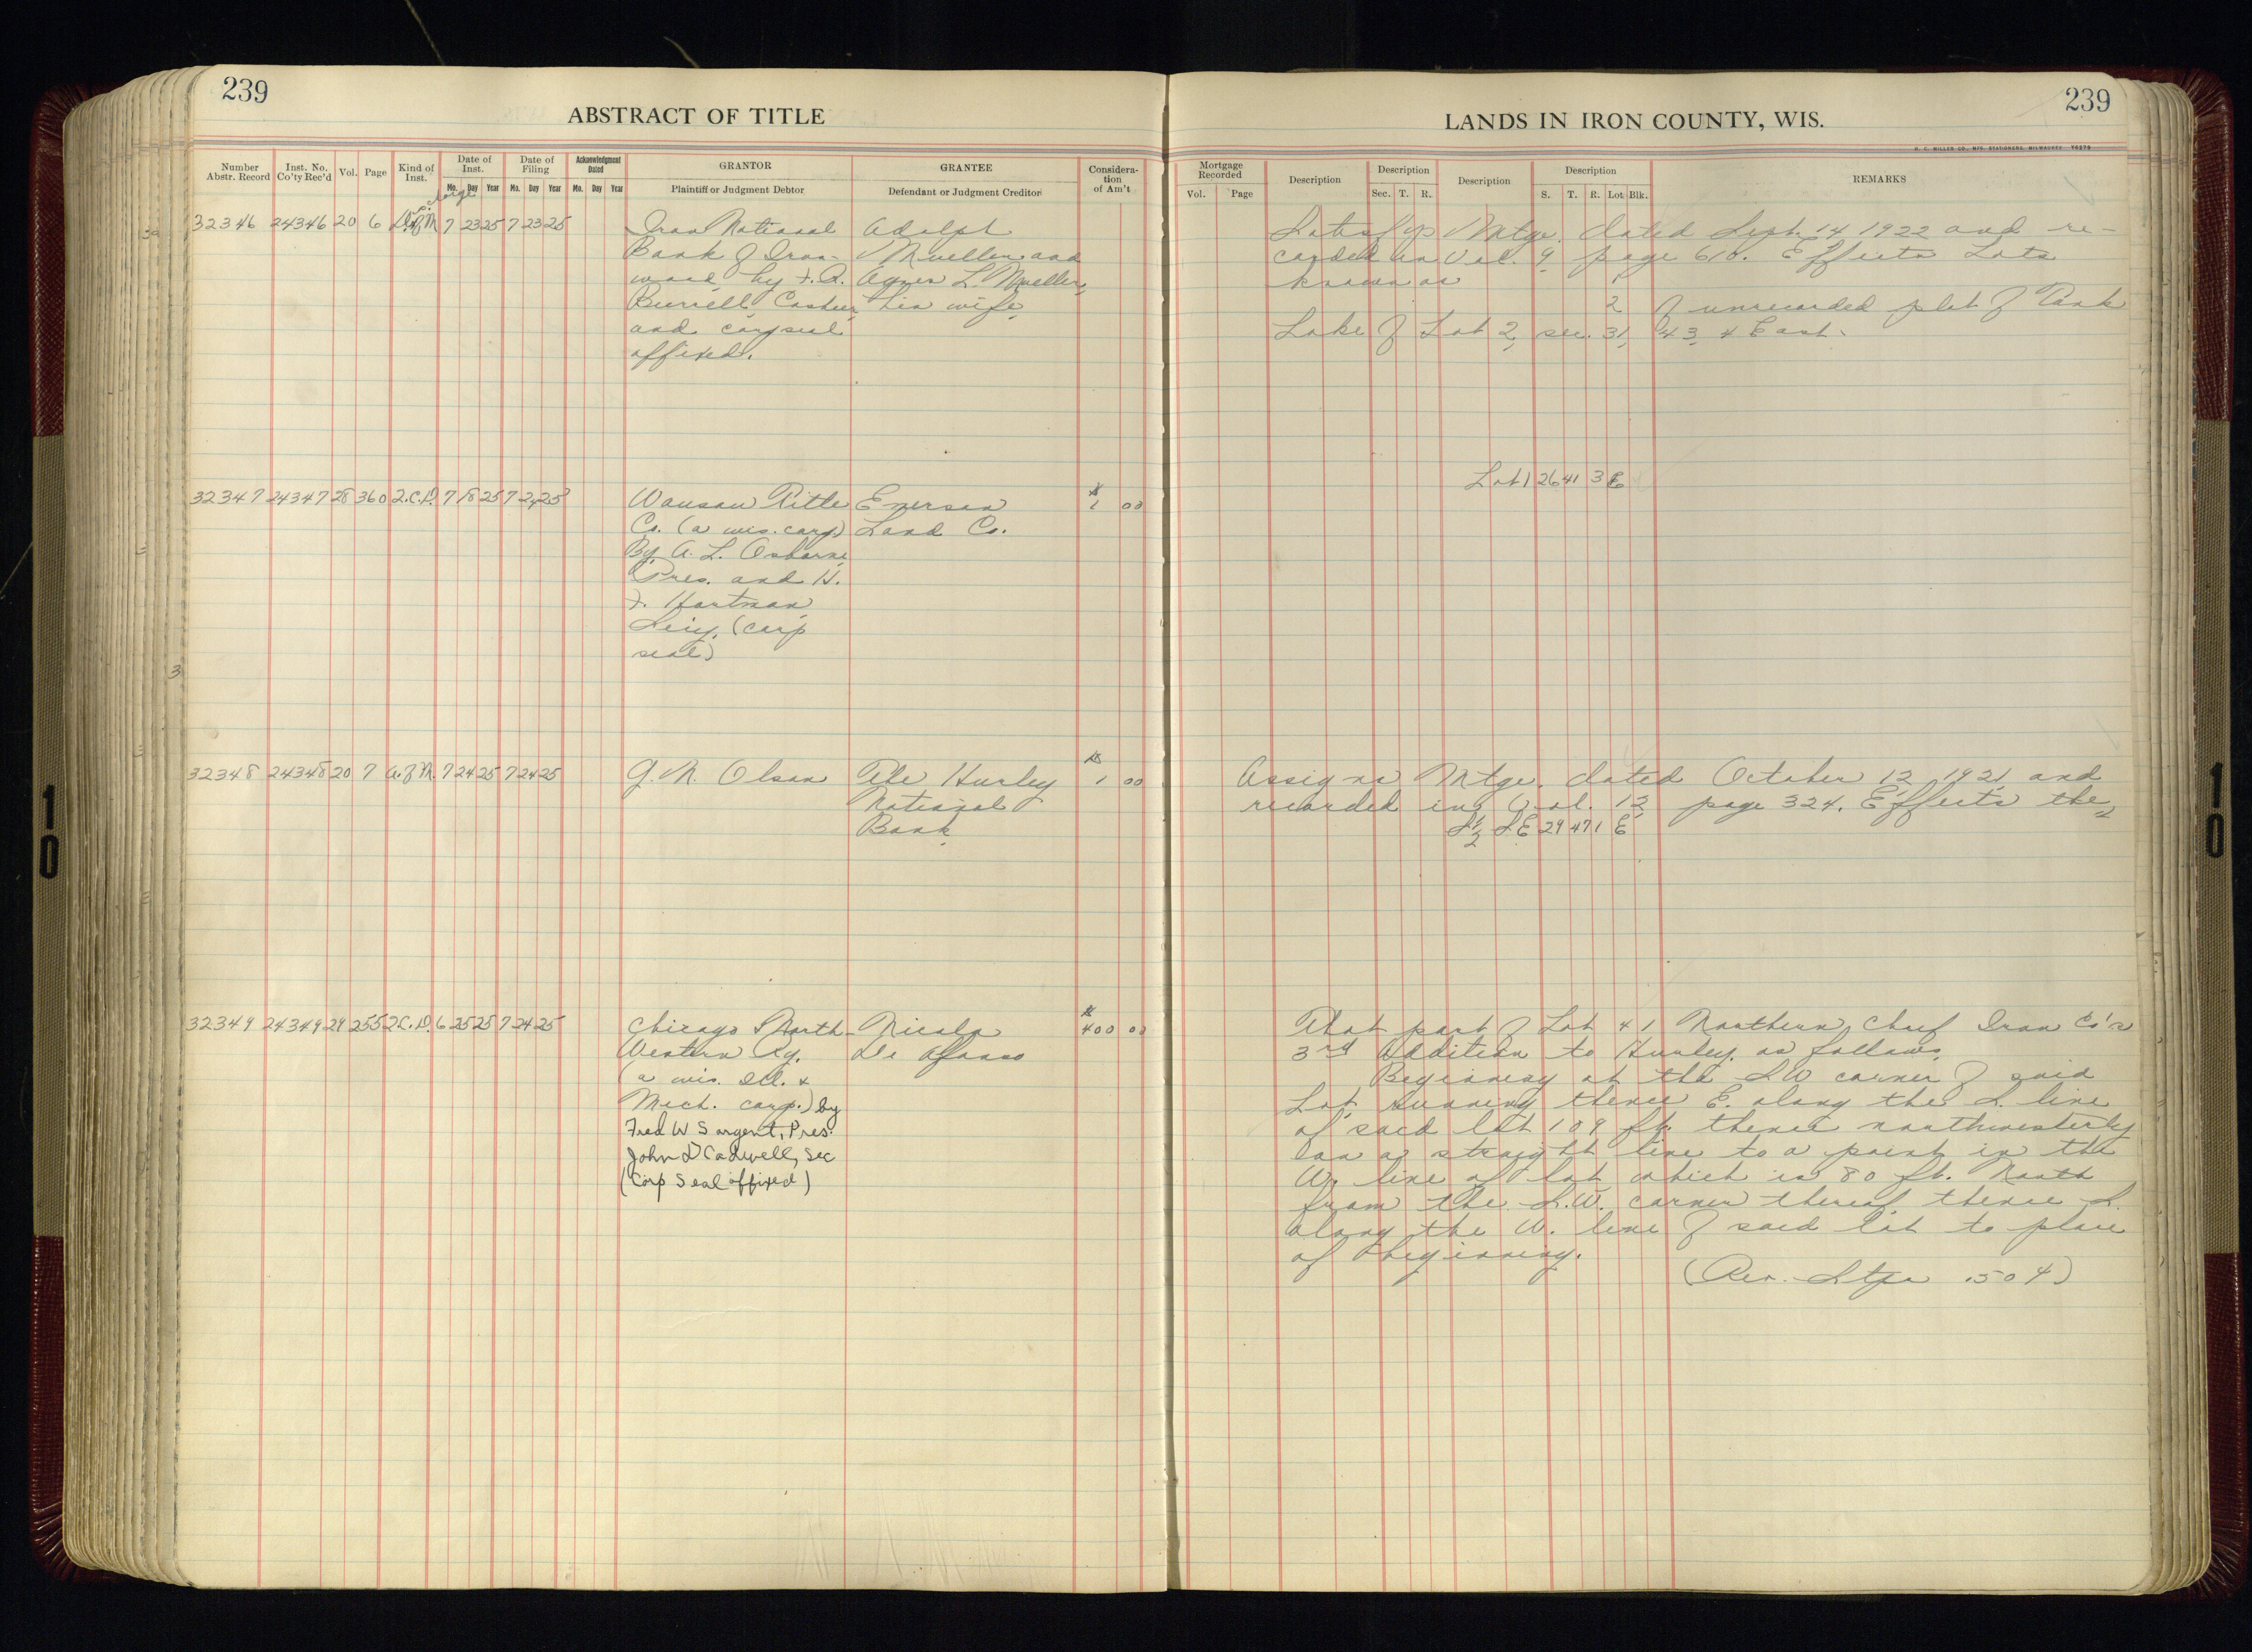 239
ABSTRACT OF TITLE
Number Abstr. Record
Inst. No. Co'ty Rec'd
Vol.
Page
Kind of Inst.
Date of Inst.
Mo. Day Year
Date of Filing
Mo. Day Year
Acknowledgment Dated
Mo. Day Year
GRANTOR
Plaintiff or Judgment Debtor
GRANTEE
Defendant or Judgment Creditor
Considera-
tion
of Am't
32346 24346 20 6 7 23 25 7 23 25
Iron National
Bank of Iron-
wood by F. R.
Burrell, Cashier
and corp seal
affixed.
Adolph
Mueller and
Agnes L. Mueller,
his wife
32347 24347 28 360 2.C.D. 7 18 25 7 24 25
Wausau Title
Co. (a wis. corp)
By A. L. Osborne,
Pres. and H.
F. Hartman,
Secy. (corp
seal)
Emerson
Land Co.
$
1 00
32348 24348 20 7 A. of M. 7 24 25 7 24 25
G. N. Olson
The Hurley
National
Bank
$
1 00
32349 24349 29 255 2C.D. 6 25 25 7 24 25
Chicago & North-
Western Ry.
(a wis. Ill. &
Mich. corp.) by
Fred W Sargent, Pres.
John D Cadwell, Sec
(Corp Seal affixed)
Nicola
De
$
400 00
239
LANDS IN IRON COUNTY, WIS.
H. C. MILLER CO., MFG. STATIONERS, MILWAUKEE 70270
Mortgage Recorded
Vol. Page
Description
Description
Sec. T. R.
Description
Description
S. T. R. Lot Blk.
REMARKS
Satisfys Mtge. dated Sept. 14 1922 and re-
corded in Vol. 9 page 610. Effects Lots
known as 1
2 of unrecorded plat of Park
Lake of Lot 2, sec. 31, 43, 4 East.
Lot 1 26 41 3 E
Assigns Mtge. dated October 12, 1921 and
recorded in Vol. 12 page 324. Effects the
S½ SE 29 47 1 E
That part of Lot 41 Northern Chief Iron Co's
3rd Addition to Hurley, as follows,
Beginning at the SW corner of said
Lot, running thence E. along the S. line
of said lot 109 ft. thence northwesterly
on a straight line to a point in the
W. line of lot which is 80 ft. North
from the S.W. corner thereof, thence S.
along the W. line of said lot to place
of beginning.
(Rev. Stps .50 ¢)